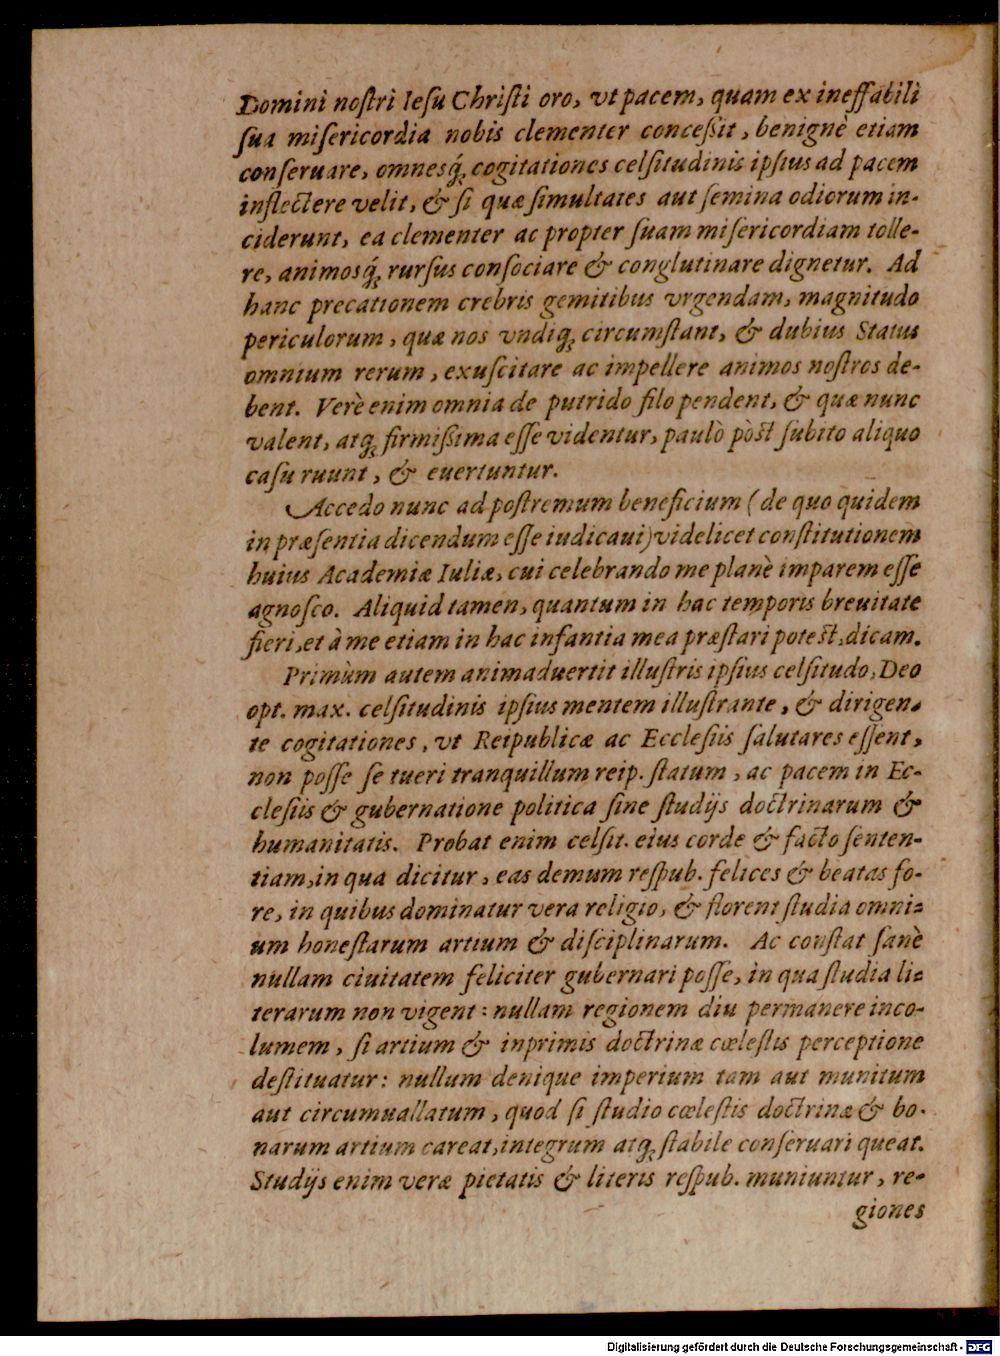 Domini noſtri Ieſu Chriſti oro, vt pacem, quam ex ineffabili
ſua miſericordia nobis clementer conceßit, benignè etiam
conſeruare, omnesq́; cogitationes celſitudinis ipſius ad pacem
inflectere velit, & ſi quæ ſimultates aut ſemina odiorum in-
ciderunt, ea clementer ac propter ſuam miſericordiam tolle-
re, animosq́; rurſus conſociare & conglutinare dignetur. Ad
hanc precationem crebris gemitibus vrgendam, magnitudo
periculorum, quæ nos vndiq; circumſtant, & dubius Status
omnium rerum, exuſcitare ac impellere animos noſtros de-
bent. Verè enim omnia de putrido filo pendent, & quæ nunc
valent, atq; firmißima eſſe videntur, paulò pòst ſubito aliquo
caſu ruunt, & euertuntur.
Accedo nunc ad poſtremum beneficium (de quo quidem
in præſentia dicendum eſſe iudicaui) videlicet conſtitutionem
huius Academiæ Iuliæ, cui celebrando me planè imparem eſſe
agnoſco. Aliquid tamen, quantum in hac temporis breuitate
fieri, et à me etiam in hac infantia mea præſtari potest, dicam.
Primùm autem animaduertit illuſtris ipſius celſitudo, Deo
opt. max. celſitudinis ipſius mentem illuſtrante, & dirigen-
te cogitationes, vt Reipublicæ ac Eccleſiis ſalutares eſſent,
non poſſe ſe tueri tranquillum reip. ſtatum, ac pacem in Ec-
cleſiis & gubernatione politica ſine ſtudijs doctrinarum &
humanitatis. Probat enim celſit. eius corde & facto ſenten-
tiam, in qua dicitur, eas demum reſpub. felices & beatas fo-
re, in quibus dominatur vera religio, & florent ſtudia omni-
um honeſtarum artium & diſciplinarum. Ac conſtat ſanè
nullam ciuitatem feliciter gubernari poſſe, in qua ſtudia li-
terarum non vigent: nullam regionem diu permanere inco-
lumem, ſi artium & inprimis doctrinæ cœleſtis perceptione
deſtituatur: nullum denique imperium tam aut munitum
aut circumuallatum, quod ſi ſtudio cœleſtis doctrinæ & bo-
narum artium careat, integrum atq; ſtabile conſeruari queat.
Studijs enim veræ pietatis & literis reſpub. muniuntur, re-
giones
Digitalisierung gefördert durch die Deutsche Forschungsgemeinschaft - DFG